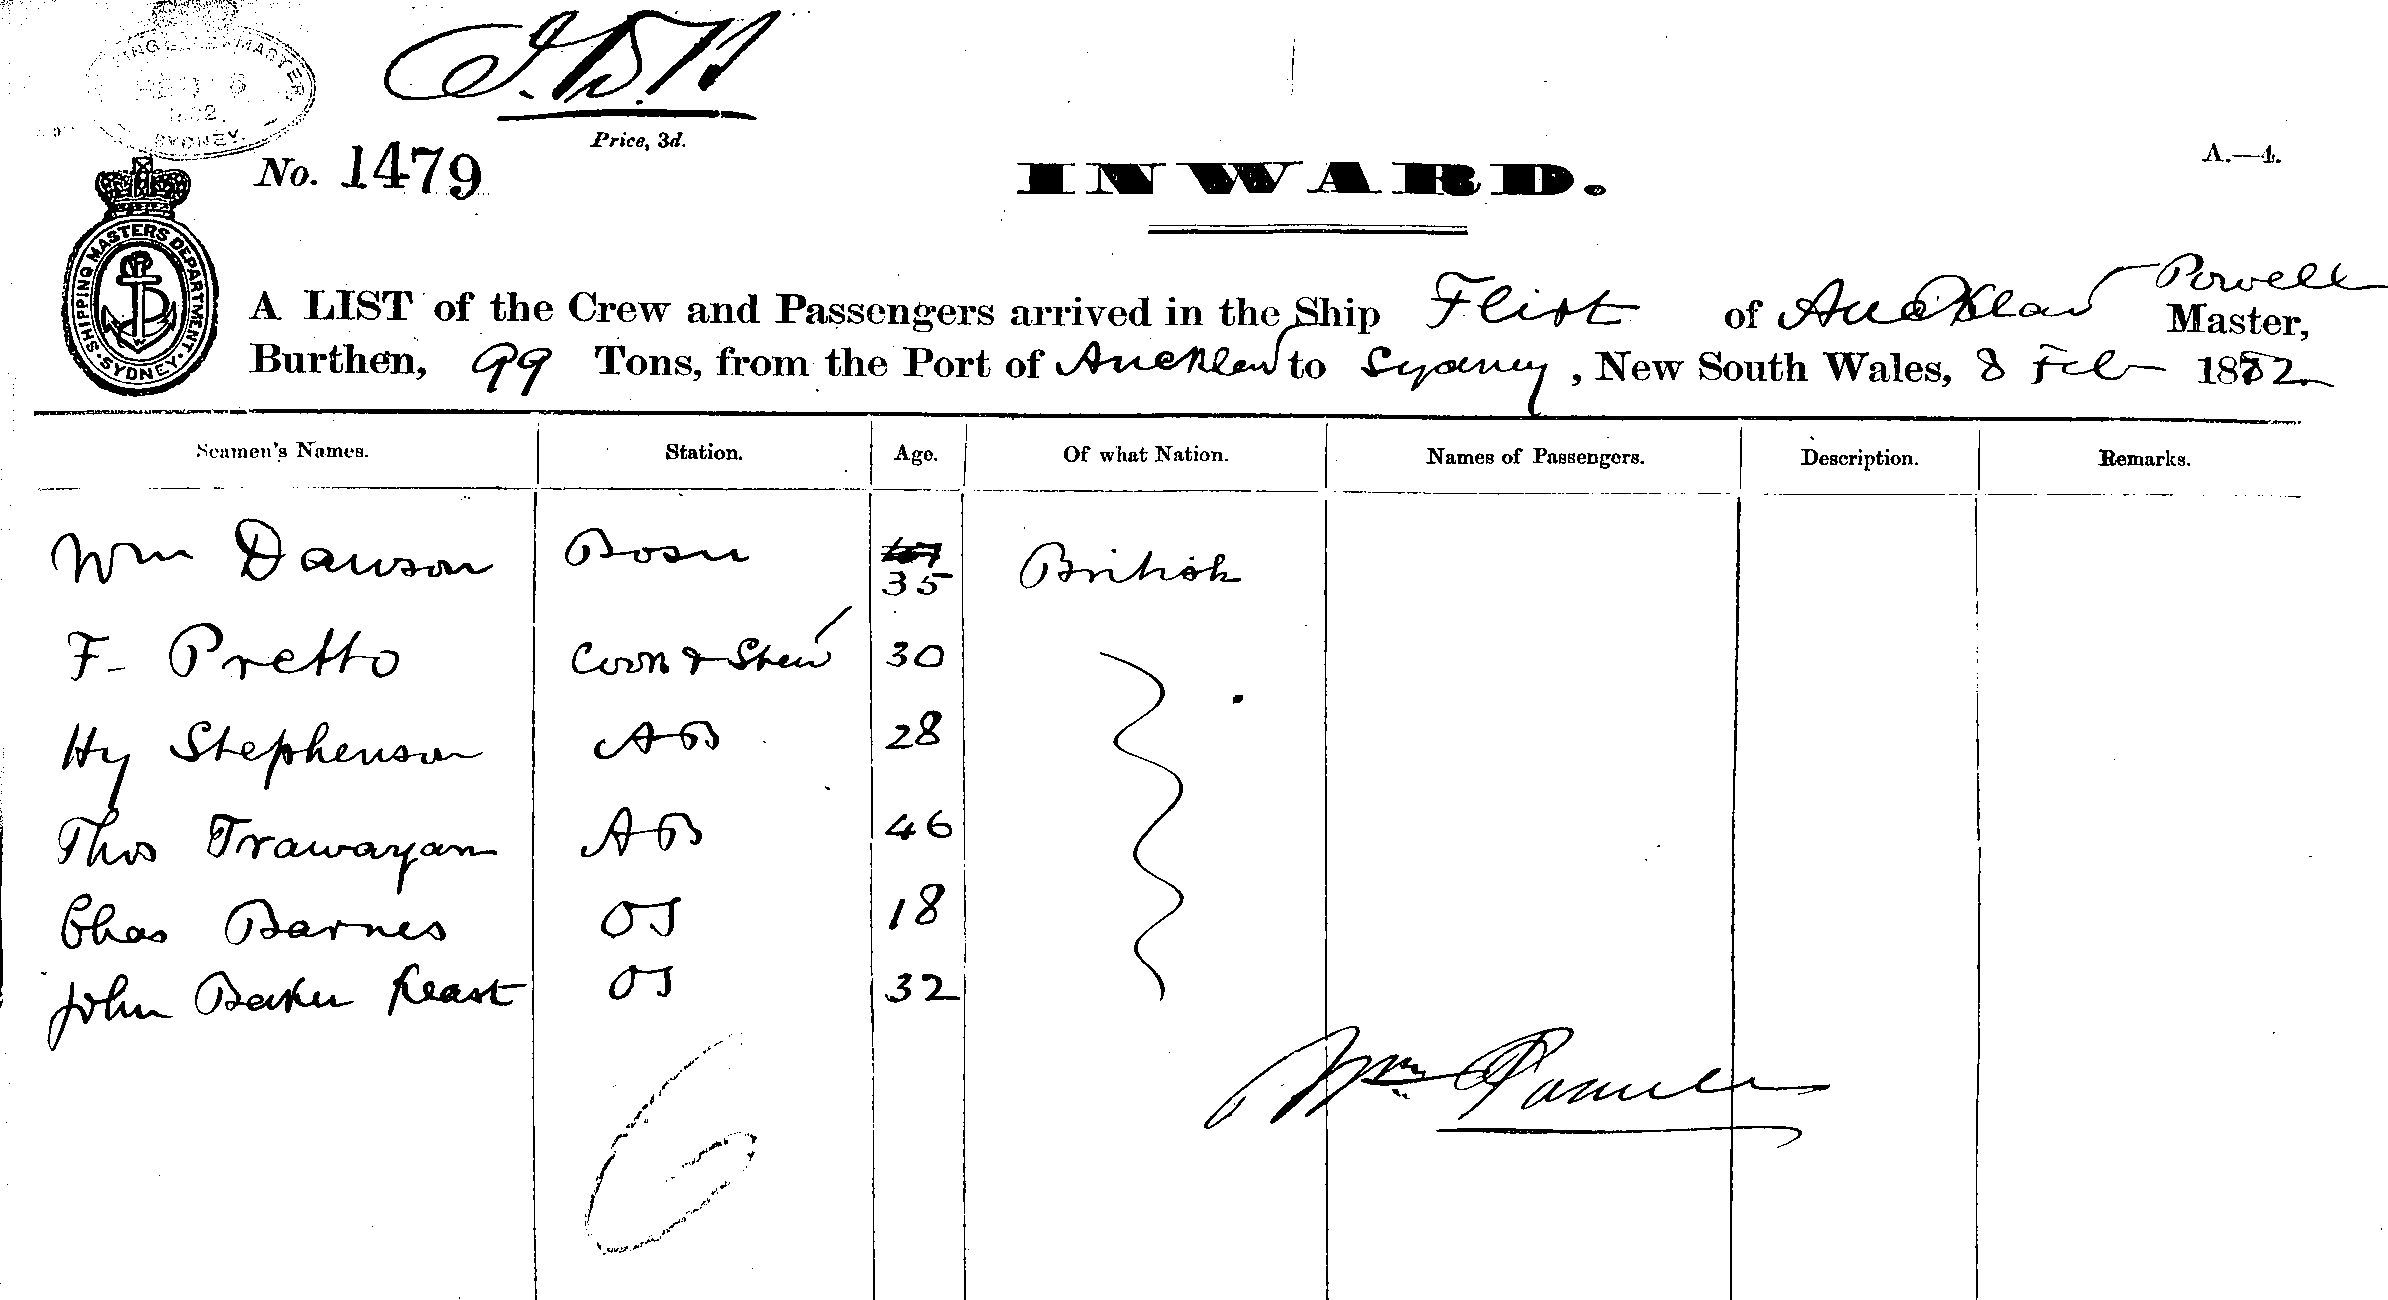 SHIPPING MASTER
FEB 8
1882
SYDNEY.
Price, 3d.
No. 1479
INWARD.
A.—4.
SHIPPING MASTERS DEPARTMENT. SYDNEY
Powell
A LIST of the Crew and Passengers arrived in the Ship Flirt of Aucklan Master,
Burthen, 99 Tons, from the Port of Aucklan to Sydney, New South Wales, 8 Feb 1882
Seamen's Names. Station. Age. Of what Nation. Names of Passengers. Description. Remarks.
Wm Dawson Bosn 35 British
F. Pretto Cook & Stew 30
Hy Stephenson AB 28
Thos Trawayan AB 46
Chas Barnes OS 18
John Baker Keast OS 32
Wm Powell
6